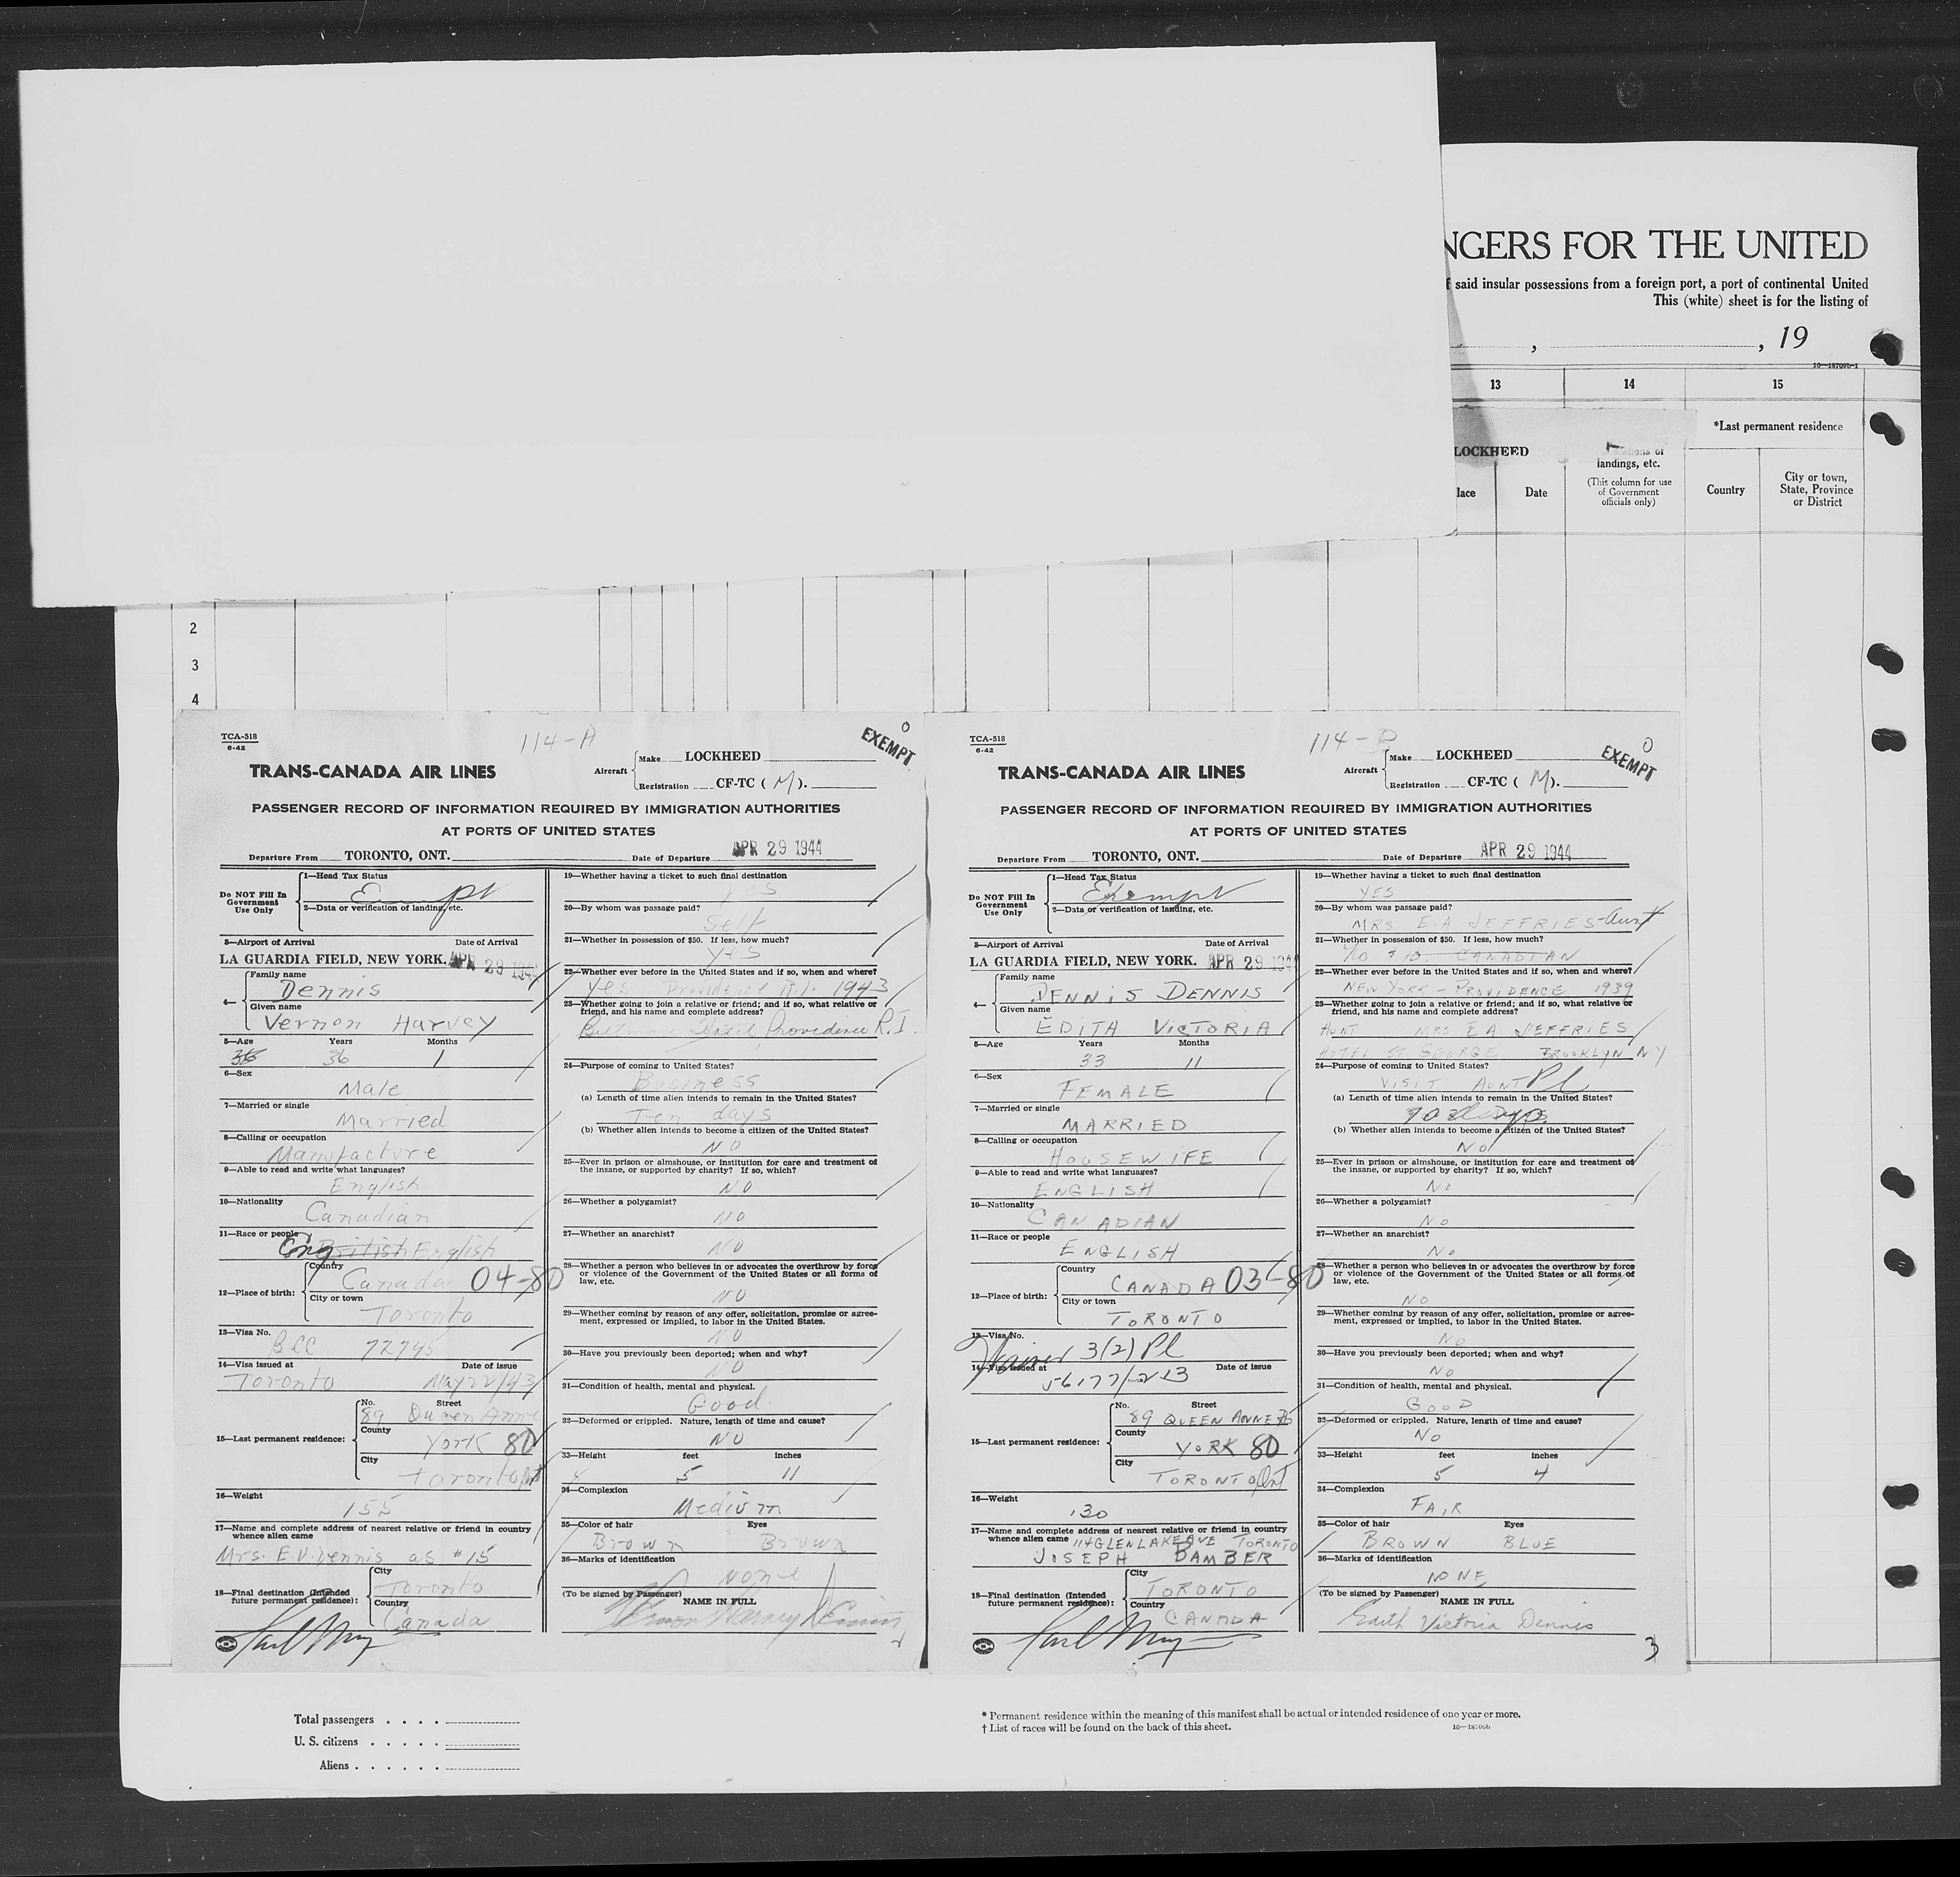 NGERS FOR THE UNITED
said insular possessions from a foreign port, a port of continental United
This (white) sheet is for the listing of
, , 19
13 14 15
*Last permanent residence
LOCKHEED
landings, etc.
(This column for use of Government officials only)
lace Date Country City or town, State, Province or District
2
3
4
TCA-518
6-42
114-A
EXEMPT
0
TRANS-CANADA AIR LINES
Aircraft
Make LOCKHEED
Registration CF-TC ( M ).
PASSENGER RECORD OF INFORMATION REQUIRED BY IMMIGRATION AUTHORITIES
AT PORTS OF UNITED STATES
Departure From TORONTO, ONT. Date of Departure APR 29 1944
Do NOT Fill In Government Use Only
1—Head Tax Status
Exempt
2—Data or verification of landing, etc.
3—Airport of Arrival Date of Arrival
LA GUARDIA FIELD, NEW YORK. APR 29 1944
4— Family name
Dennis
Given name
Vernon Harvey
5—Age Years Months
36 36 1
6—Sex
Male
7—Married or single
Married
8—Calling or occupation
Manufacture
9—Able to read and write what languages?
English
10—Nationality
Canadian
11—Race or people
British English
12—Place of birth: Country
Canada 04-80
City or town
Toronto
13—Visa No.
BCC 72795
14—Visa issued at Date of issue
Toronto May 22/43
15—Last permanent residence: No. Street
89 Queen Anne
County
York 80
City
Toronto Ont
16—Weight
155
17—Name and complete address of nearest relative or friend in country whence alien came
Mrs. E.V. Dennis as #15
18—Final destination (Intended future permanent residence): City
Toronto
Country
Canada
19—Whether having a ticket to such final destination
Yes
20—By whom was passage paid?
Self
21—Whether in possession of $50. If less, how much?
Yes
22—Whether ever before in the United States and if so, when and where?
Yes Providence R.I. 1943
23—Whether going to join a relative or friend; and if so, what relative or
friend, and his name and complete address?
Biltmore Hotel Providence R.I.
24—Purpose of coming to United States?
Business
(a) Length of time alien intends to remain in the United States?
Ten days
(b) Whether alien intends to become a citizen of the United States?
NO
25—Ever in prison or almshouse, or institution for care and treatment of
the insane, or supported by charity? If so, which?
NO
26—Whether a polygamist?
NO
27—Whether an anarchist?
NO
28—Whether a person who believes in or advocates the overthrow by force
or violence of the Government of the United States or all forms of
law, etc.
NO
29—Whether coming by reason of any offer, solicitation, promise or agree-
ment, expressed or implied, to labor in the United States.
NO
30—Have you previously been deported; when and why?
NO
31—Condition of health, mental and physical.
Good.
32—Deformed or crippled. Nature, length of time and cause?
NO
33—Height feet inches
5 11
34—Complexion
Medium
35—Color of hair Eyes
Brown Brown
36—Marks of identification
None
(To be signed by Passenger) NAME IN FULL
Vernon Harvey Dennis
2
TCA-518
6-42
114-B
EXEMPT
0
TRANS-CANADA AIR LINES
Aircraft
Make LOCKHEED
Registration CF-TC ( M ).
PASSENGER RECORD OF INFORMATION REQUIRED BY IMMIGRATION AUTHORITIES
AT PORTS OF UNITED STATES
Departure From TORONTO, ONT. Date of Departure APR 29 1944
Do NOT Fill In Government Use Only
1—Head Tax Status
Exempt
2—Data or verification of landing, etc.
3—Airport of Arrival Date of Arrival
LA GUARDIA FIELD, NEW YORK. APR 29 1944
4— Family name
DENNIS DENNIS
Given name
EDITH VICTORIA
5—Age Years Months
33 11
6—Sex
FEMALE
7—Married or single
MARRIED
8—Calling or occupation
HOUSEWIFE
9—Able to read and write what languages?
ENGLISH
10—Nationality
CANADIAN
11—Race or people
ENGLISH
12—Place of birth: Country
CANADA 03-80
City or town
TORONTO
13—Visa No.
Waiver 3(2) Pl
14—Visa issued at Date of issue
56177/213
15—Last permanent residence: No. Street
89 QUEEN ANNE
County
YORK 80
City
TORONTO Ont
16—Weight
130
17—Name and complete address of nearest relative or friend in country
whence alien came 114 GLENLAKE AVE TORONTO
JOSEPH BAMBER
18—Final destination (Intended future permanent residence): City
TORONTO
Country
CANADA
19—Whether having a ticket to such final destination
YES
20—By whom was passage paid?
MRS E.A JEFFRIES-Aunt
21—Whether in possession of $50. If less, how much?
CANADIAN
22—Whether ever before in the United States and if so, when and where?
NEW YORK - PROVIDENCE 1939
23—Whether going to join a relative or friend; and if so, what relative or
friend, and his name and complete address?
AUNT MRS EA JEFFRIES
HOTEL ST. GEORGE BROOKLYN NY
24—Purpose of coming to United States?
VISIT AUNT Pl
(a) Length of time alien intends to remain in the United States?
10 days
(b) Whether alien intends to become a citizen of the United States?
No
25—Ever in prison or almshouse, or institution for care and treatment of
the insane, or supported by charity? If so, which?
No
26—Whether a polygamist?
No
27—Whether an anarchist?
No
28—Whether a person who believes in or advocates the overthrow by force
or violence of the Government of the United States or all forms of
law, etc.
NO
29—Whether coming by reason of any offer, solicitation, promise or agree-
ment, expressed or implied, to labor in the United States.
No
30—Have you previously been deported; when and why?
No
31—Condition of health, mental and physical.
GOOD
32—Deformed or crippled. Nature, length of time and cause?
No
33—Height feet inches
5 4
34—Complexion
FAIR
35—Color of hair Eyes
BROWN BLUE
36—Marks of identification
NONE
(To be signed by Passenger) NAME IN FULL
Edith Victoria Dennis
3
Total passengers . . . .
U. S. citizens . . . . .
Aliens . . . . . .
* Permanent residence within the meaning of this manifest shall be actual or intended residence of one year or more.
† List of races will be found on the back of this sheet.
16—18706b